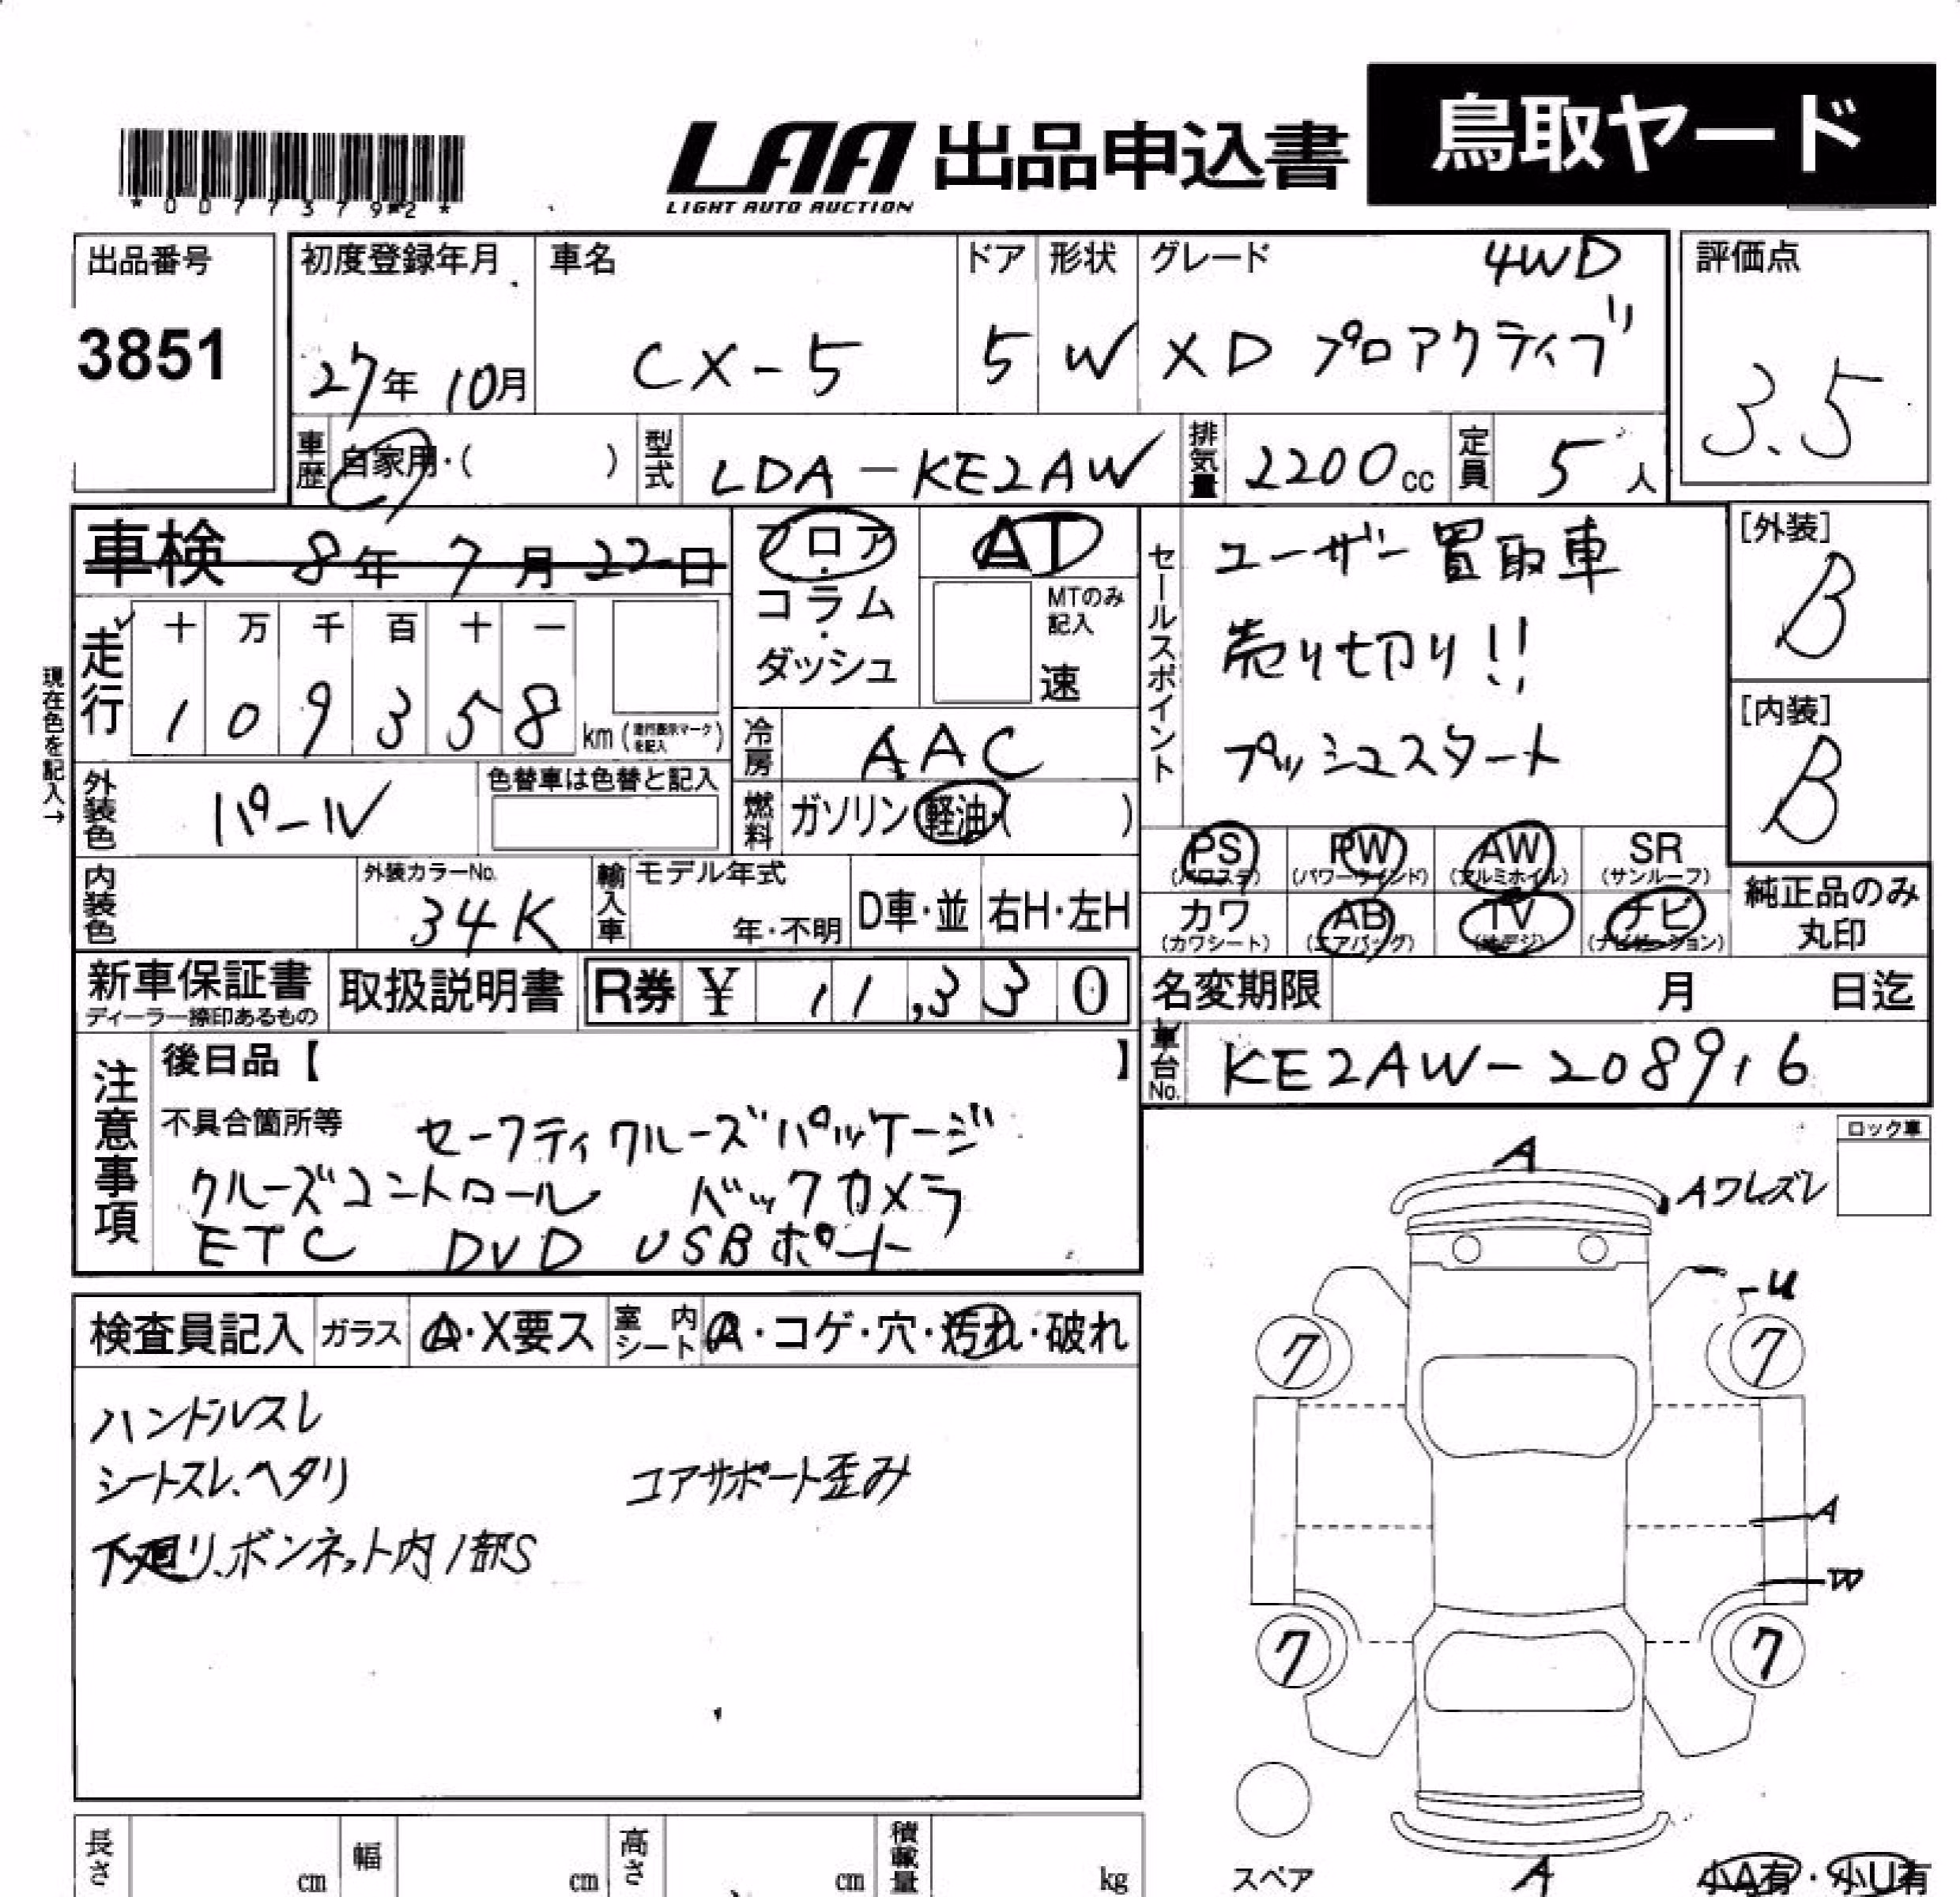 *0077379*2*
LAA 出品申込書 鳥取ヤード
LIGHT AUTO AUCTION
出品番号 3851
初度登録年月 27年 10月
車名 CX-5
ドア 5
形状 W
グレード 4WD
XD プロアクティブ
評価点 3.5
車歴 自家用・( )
型式 LDA-KE2AW
排気量 2200cc
定員 5人
車検 8年 7月 22日
フロア・コラム・ダッシュ
AT
MTのみ記入
速
セールスポイント
ユーザー買取車
売り切り!!
プッシュスタート
[外装] B
[内装] B
現在色を記入→
走行 十 万 千 百 十 一
1 0 9 3 5 8 km (走行表示マークを記入)
冷房 AAC
燃料 ガソリン・軽油・( )
外装色 パール
色替車は色替と記入
内装色
外装カラーNo. 34K
輸入車 モデル年式 年・不明
D車・並 右H・左H
PS (パワステ) PW (パワーウインド) AW (アルミホイル) SR (サンルーフ)
カワ (カワシート) AB (エアバッグ) TV (地デジ) ナビ (ナビゲーション)
純正品のみ丸印
新車保証書
ディーラー捺印あるもの
取扱説明書
R券 ¥ 11,330
名変期限 月 日迄
車台No. KE2AW-208916
注意事項
後日品【 】
不具合箇所等 セーフティクルーズパッケージ
クルーズコントロール バックカメラ
ETC DVD USBポート
ロック車
A
Aワレズレ
-U
検査員記入 ガラス A・X要ス 室内シート A・コゲ・穴・汚れ・破れ
ハンドルスレ
シートスレ、ヘタリ コアサポート歪み
下廻り、ボンネット内1部S
7 7
A
W
7 7
スペア
A
小A有・小U有
長さ cm 幅 cm 高さ cm 積載量 kg